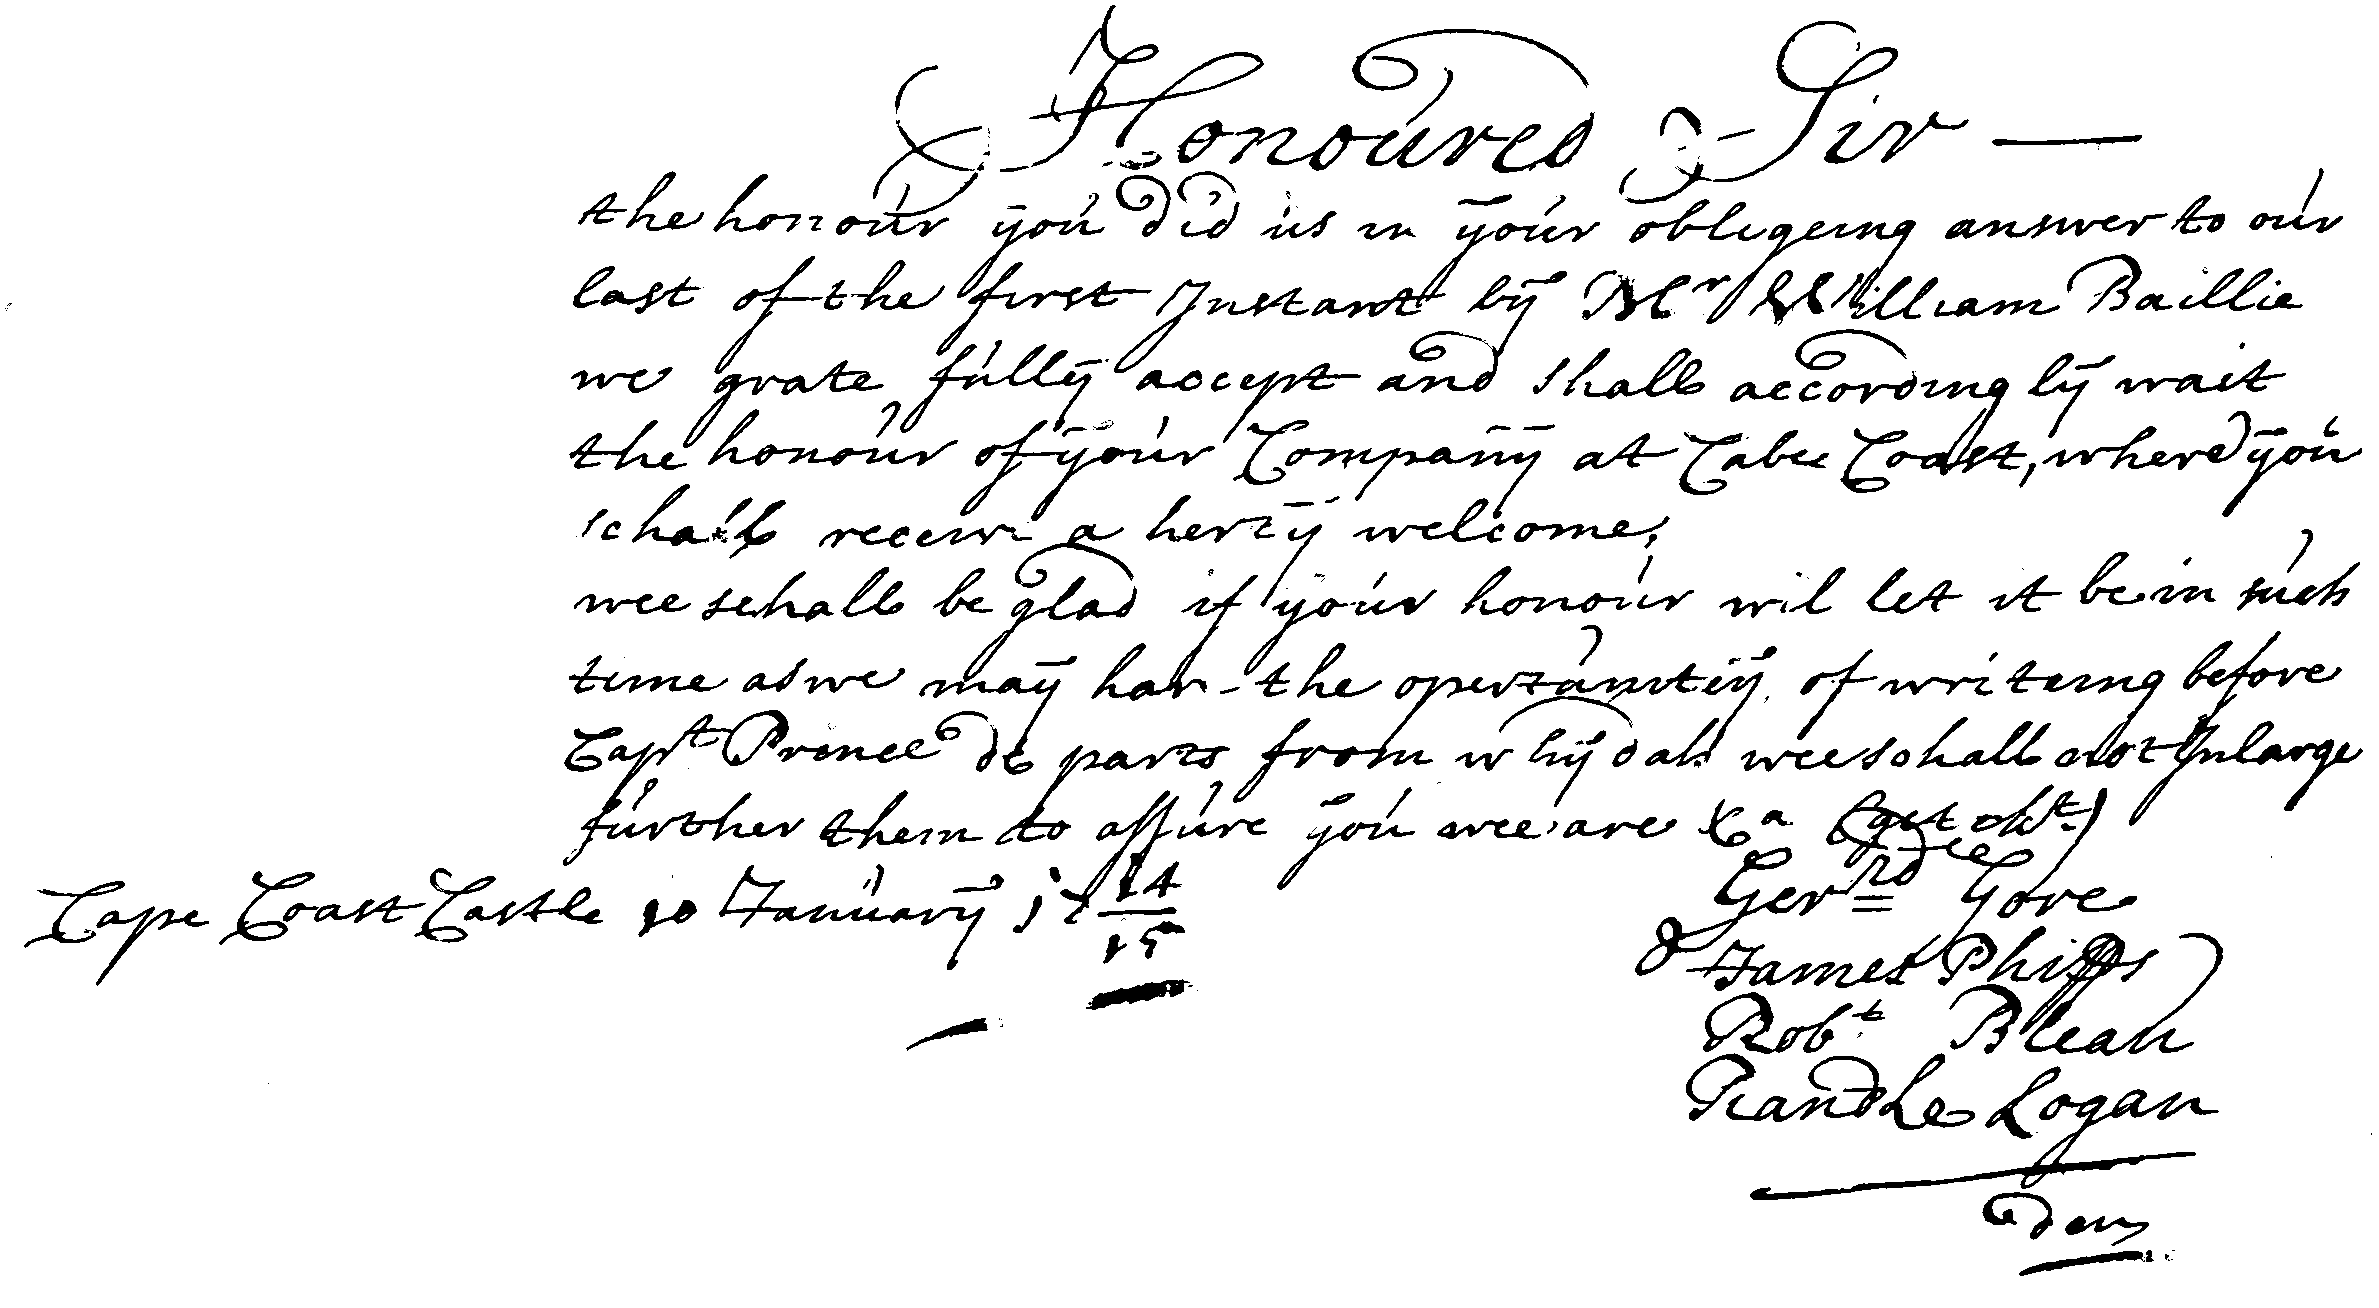 Honoured Sir —
the honour you did us in your obligeing answer to our
last of the first Instant by Mr William Baillie
we grate fully accept and shall accordingly wait
the honour of your Company at Cabe Coast, where you
schall receive a herty welcome,
wee schall be glad if your honour wil let it be in such
time as we may have the opertunityy of writeing before
Capt Prence de parts from whydah wee schall not Inlarge
further them to assure you wee are &a
Cape Coast Castle 10 January 17 14/15
Gerrd Gore
& James Phipps
Robt Blean
Randle Logan